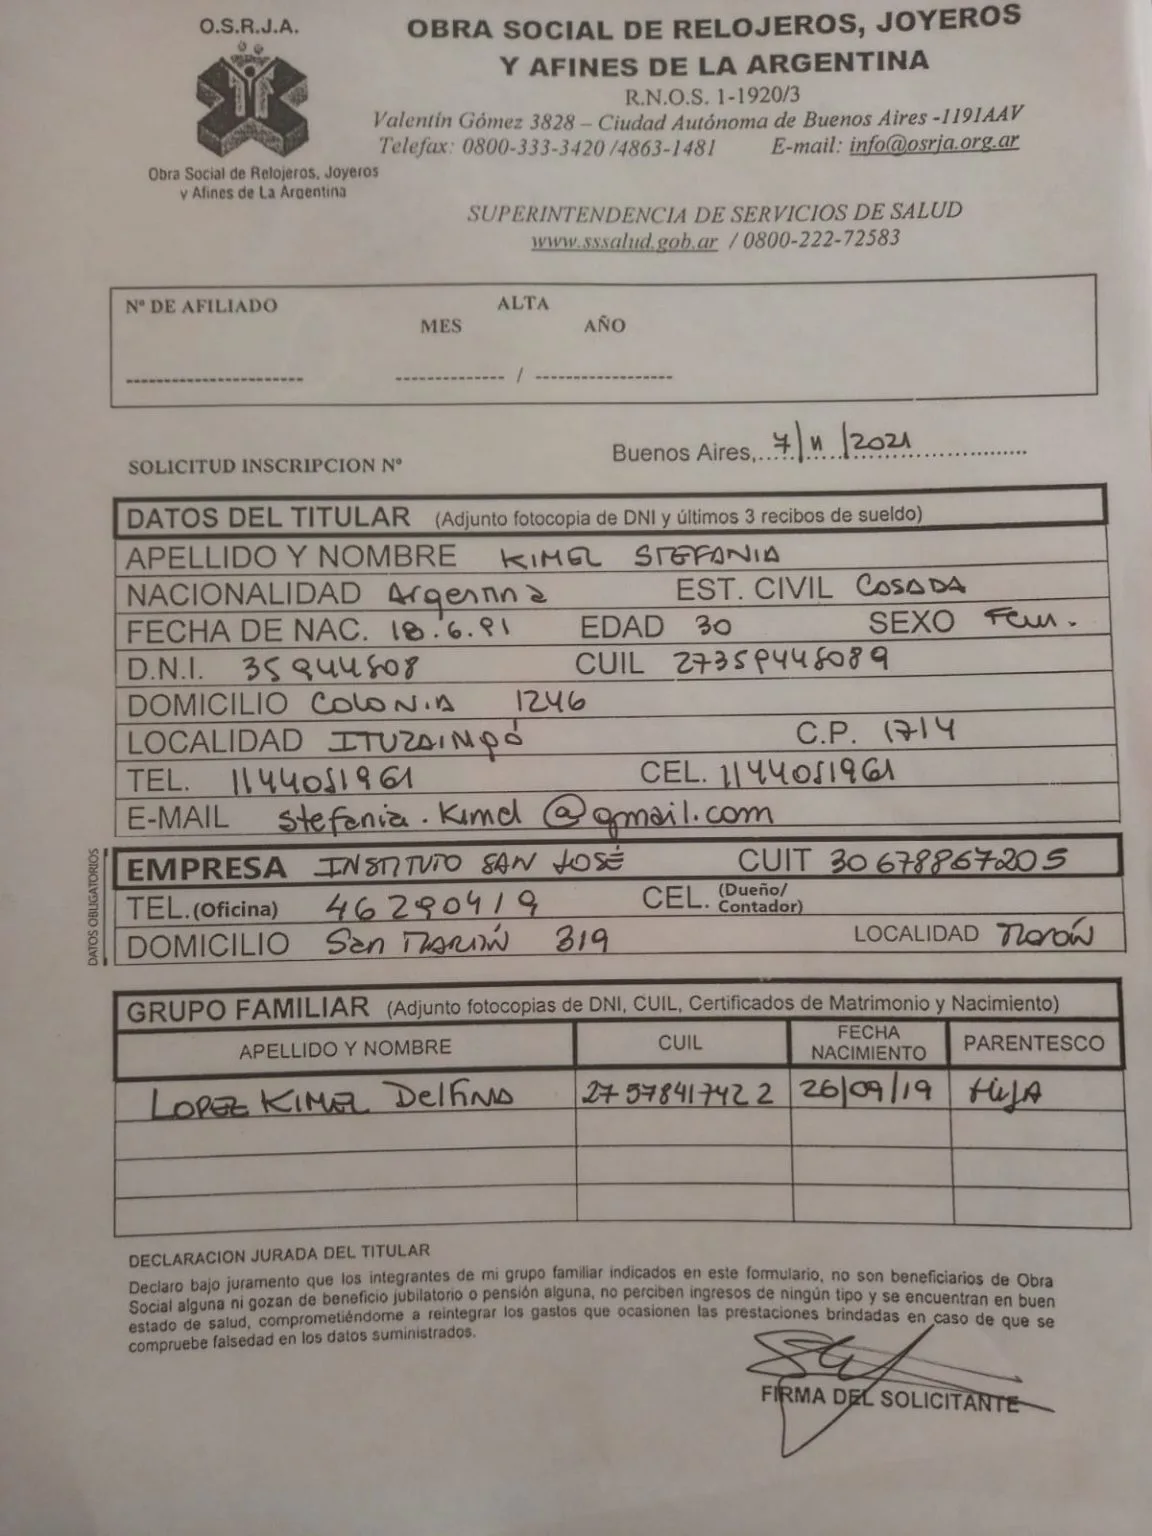 O.S.R.J.A.
Obra Social de Relojeros, Joyeros
y Afines de La Argentina
OBRA SOCIAL DE RELOJEROS, JOYEROS
Y AFINES DE LA ARGENTINA
R.N.O.S. 1-1920/3
Valentín Gómez 3828 – Ciudad Autónoma de Buenos Aires -1191AAV
Telefax: 0800-333-3420 /4863-1481 E-mail: info@osrja.org.ar
SUPERINTENDENCIA DE SERVICIOS DE SALUD
www.sssalud.gob.ar / 0800-222-72583
Nº DE AFILIADO ALTA
MES AÑO
/
SOLICITUD INSCRIPCION Nº Buenos Aires, 7/11/2021
DATOS DEL TITULAR (Adjunto fotocopia de DNI y últimos 3 recibos de sueldo)
APELLIDO Y NOMBRE KIMEL STEFANIA
NACIONALIDAD Argentina EST. CIVIL CASADA
FECHA DE NAC. 18.6.91 EDAD 30 SEXO Fem.
D.N.I. 35944808 CUIL 27359448089
DOMICILIO COLONIA 1246
LOCALIDAD ITUZAINGÓ C.P. 1714
TEL. 1144051961 CEL. 1144051961
E-MAIL stefania.kimel@gmail.com
DATOS OBLIGATORIOS
EMPRESA INSTITUTO SAN JOSÉ CUIT 30678867205
TEL.(Oficina) 46290419 CEL. (Dueño/Contador)
DOMICILIO San MARTÍN 319 LOCALIDAD Morón
GRUPO FAMILIAR (Adjunto fotocopias de DNI, CUIL, Certificados de Matrimonio y Nacimiento)
APELLIDO Y NOMBRE CUIL FECHA NACIMIENTO PARENTESCO
LOPEZ KIMEL Delfina 27578417422 26/09/19 HIJA
DECLARACION JURADA DEL TITULAR
Declaro bajo juramento que los integrantes de mi grupo familiar indicados en este formulario, no son beneficiarios de Obra
Social alguna ni gozan de beneficio jubilatorio o pensión alguna, no perciben ingresos de ningún tipo y se encuentran en buen
estado de salud, comprometiéndome a reintegrar los gastos que ocasionen las prestaciones brindadas en caso de que se
compruebe falsedad en los datos suministrados.
FIRMA DEL SOLICITANTE